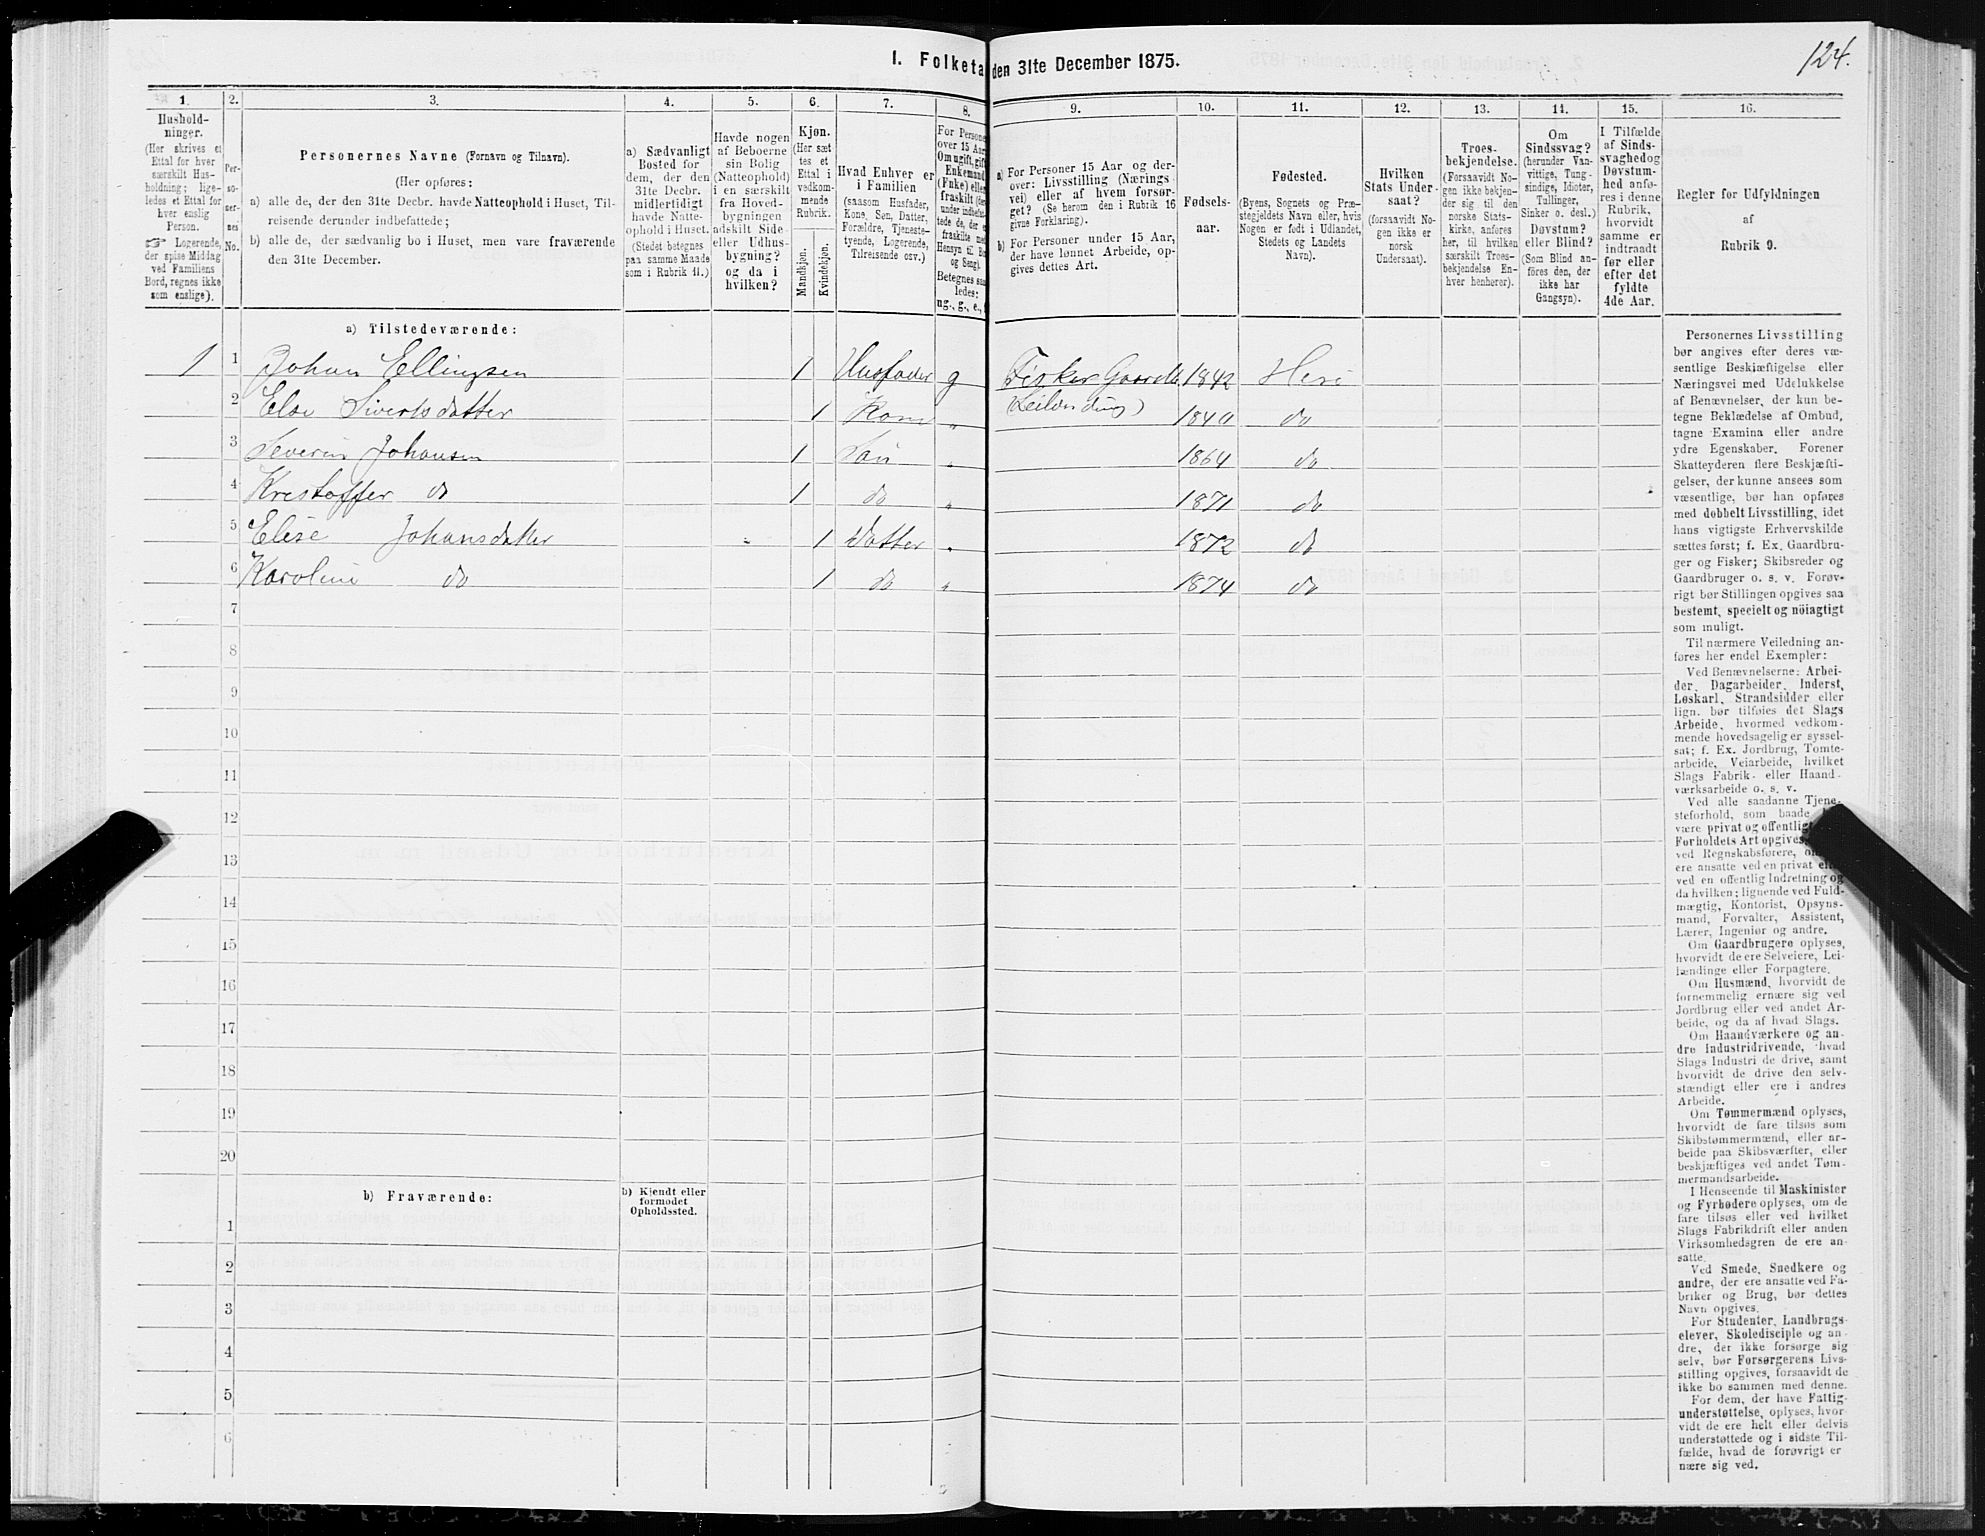 124.
1. Folketa den 31te December 1875.
1.
Hushold-
ninger.
(Her skrives et
Ettal for hver
særskilt Hus-
holdning; lige-
ledes et Ettal for
hver enslig
Person.
☞ Logerende,
der spise Middag
ved Familiens
Bord, regnes ikke
som enslige).
2.
Per-
so-
ner-
nes
No.
3.
Personernes Navne (Fornavn og Tilnavn).
(Her opføres:
a) alle de, der den 31te Decbr. havde Natteophold i Huset, Til-
reisende derunder indbefattede;
b) alle de, der sædvanlig bo i Huset, men vare fraværende
den 31te December.
4.
a) Sædvanligt
Bosted for
dem, der den
31te Decbr.
midlertidigt
havde Natte-
ophold i Huset.
(Stedet betegnes
paa samme Maade
som i Rubrik 11.)
5.
Havde nogen
af Beboerne
sin Bolig
(Natteophold)
i en særskilt
fra Hoved-
bygningen
adskilt Side-
eller Udhus-
bygning?
og da i
hvilken?
6.
Kjøn.
(Her sæt
tes et
Ettal i
vedkom-
mende
Rubrik.
Mandkjøn.
Kvindekjøn.
7.
Hvad Enhver er
i Familien
(saasom Husfader,
Kone, Søn, Datter,
Forældre, Tjeneste-
tyende, Logerende,
Tilreisende osv.)
8.
For Persone
over 15 Aar
Om ugift, gift
Enkemand
(Enke) eller
fraskilt (der
under indbefat-
tede de, der e
fraskilte med
Hensyn til Bo
og Seng).
Betegnes saa
ledes:
ug., g., e.,
9.
a) For Personer 15 Aar og der-
over: Livsstilling (Nærings-
vei) eller af hvem forsør-
get? (Se herom den i Rubrik 16
givne Forklaring).
b) For Personer under 15 Aar,
der have lønnet Arbeide, op-
gives dettes Art.
10.
Fødsels-
aar.
11.
Fødested.
(Byens, Sognets og Præ-
stegjeldets Navn eller, hvis
Nogen er født i Udlandet,
Stedets og Landets
Navn).
12.
Hvilken
Stats Under-
saat?
(forsaavidt No-
gen ikke er
norsk
Undersaat).
13.
Troes-
bekjendelse.
(Forsaavidt No-
gen ikke bekjen-
der sig til den
norske Stats-
kirke, anføres
her, til hvilken
særskilt Troes-
bekjendelse En-
hver henhører).
14.
Om
Sindssvag?
(herunder Van-
vittige, Tung-
sindige, Idioter,
Tullinger,
Sinker o. desl.)
Døvstum?
eller Blind?
(Som Blind an-
føres den, der
ikke har
Gangsyn).
15.
I Tilfælde
af Sinds-
svaghedog
Døvstum-
hed anfø-
res i denne
Rubrik,
hvorvidt
samme er
indtraadt
før eller
efter det
fyldte
4de Aar.
16.
Regler for Udfyldningen
af
Rubrik 9.
a) Tilstedeværende:
1 1 Johan Ellingsen 1 Husfader g Fisker Gaardb. 1842 Herö
2 Else Sivertsdatter 1 Kone „ (Leilænding) 1840 do
3 Severin Johansen 1 Sön „ 1864 do
4 Kristoffer do 1 do „ 1871 do
5 Elise Johansdatter 1 Datter „ 1872 do
6 Karoline do 1 do „ 1874 do
7
8
9
10
11
12
13
14
15
16
17
18
19
20
b) Fraværende:
b) Kjendt eller
formodet
Opholdssted.
1
2
3
4
5
6
Personernes Livsstilling
bør angives efter deres væ-
sentlige Beskjæftigelse eller
Næringsvei med Udelukkelse
af Benævnelser, der kun be-
tegne Beklædelse af Ombud,
tagne Examina eller andre
ydre Egenskaber. Forener
Skatteyderen flere Beskjæfti-
gelser, der kunne ansees som
væsentlige, bør han opføres
med dobbelt Livsstilling, idet
hans vigtigste Erhvervskilde
sættes først; f. Ex. Gaardbru-
ger og Fisker; Skibsreder og
Gaardbruger o. s. v. Forøv-
rigt bør Stillingen opgives saa
bestemt, specielt og nöiagtigt
som muligt.
Til nærmere Veiledning an-
føres her endel Exempler:
Ved Benævnelserne: Arbei-
der, Dagarbeider, Inderst,
Løskarl, Strandsidder eller
lign. bør tilføies det Slags
Arbeide, hvormed vedkom-
mende hovedsagelig er syssel-
sat; f. Ex. Jordbrug, Tomte-
arbeide, Veiarbeide, hvilket
Slags Fabrik- eller Haand-
værksarbeide o. s. v.
Ved alle saadanne Tjene-
steforhold, som baade
være privat og offentlig
Forholdets Art opgives,
ved Regnskabsførere, om
ere ansatte ved en privat eller
ved en offentlig Indretning og
da hvilken; lignende ved Fuld-
mægtig, Kontorist, Opsyns-
mand, Forvalter, Assistent,
Lærer, Ingeniør og andre.
Om Gaardbrugere oplyses,
hvorvidt de ere Selveiere, Lei-
lændinge eller Forpagtere.
Om Husmænd, hvorvidt de
fornemmelig ernære sig ved
Jordbrug eller ved andet Ar-
beide, og da af hvad Slags.
Om Haandværkere og an-
dre Industridrivende, hvad
Slags Industri de drive, samt
hvorvidt de drive den selv-
stændigt eller ere i andres
Arbeide.
Om Tømmermænd oplyses,
hvorvidt de fare tilsøs som
Skibstømmermænd, eller ar-
beide paa Skibsværfter, eller
beskjæftiges ved andet Tøm-
mermandsarbeide.
I Henseende til Maskinister
og Fyrbødere oplyses, om de
fare tilsøs eller ved hvilket
Slags Fabrikdrift eller anden
Virksomhedsgren de ere an-
satte.
Ved Smede, Snedkere og
andre, der ere ansatte ved Fa-
briker og Brug, bør dettes
Navn opgives.
For Studenter, Landbrugs-
elever, Skoledisciple og an-
dre, der ikke forsørge sig
selv, bør Forsørgerens Livs-
stilling opgives, forsaavidt de
ikke bo sammen med denne.
For dem, der have Fattig-
understøttelse, oplyses, hvor-
vidt de ere helt eller delvis
understøttede og i sidste Til-
fælde, hvad de forøvrigt er
nære sig ved.